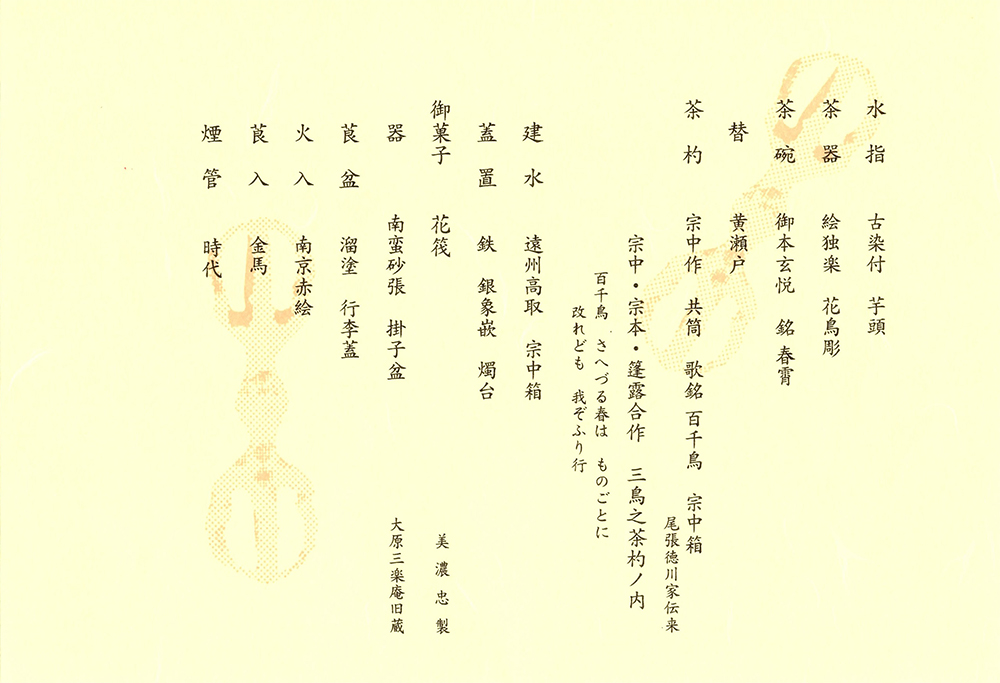 水指　古染付　芋頭
茶器　絵独楽　花鳥彫
茶碗　御本玄悦　銘 春霄
替　黄瀬戸
茶杓　宗中作　共筒　歌銘 百千鳥　宗中箱
尾張徳川家伝来
宗中・宗本・篷露合作　三鳥之茶杓ノ内
百千鳥　さへづる春は　ものごとに
改れども　我ぞふり行
建水　遠州高取　宗中箱
蓋置　鉄　銀象嵌　燭台
御菓子　花筏　美濃忠製
器　南蛮砂張　掛子盆　大原三楽庵旧蔵
莨盆　溜塗　行李蓋
火入　南京赤絵
莨入　金馬
煙管　時代